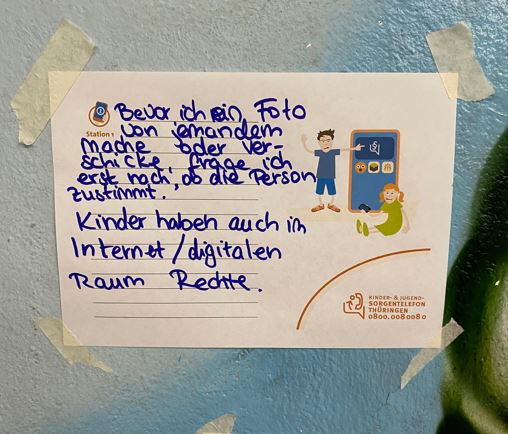 Station 1
Bevor ich ein Foto
von jemandem
mache oder ver-
schicke, frage ich
erst nach, ob die Person
zustimmt.
Kinder haben auch im
Internet/digitalen
Raum Rechte.
§
KINDER- & JUGEND-
SORGENTELEFON
THÜRINGEN
0800.008 008 0